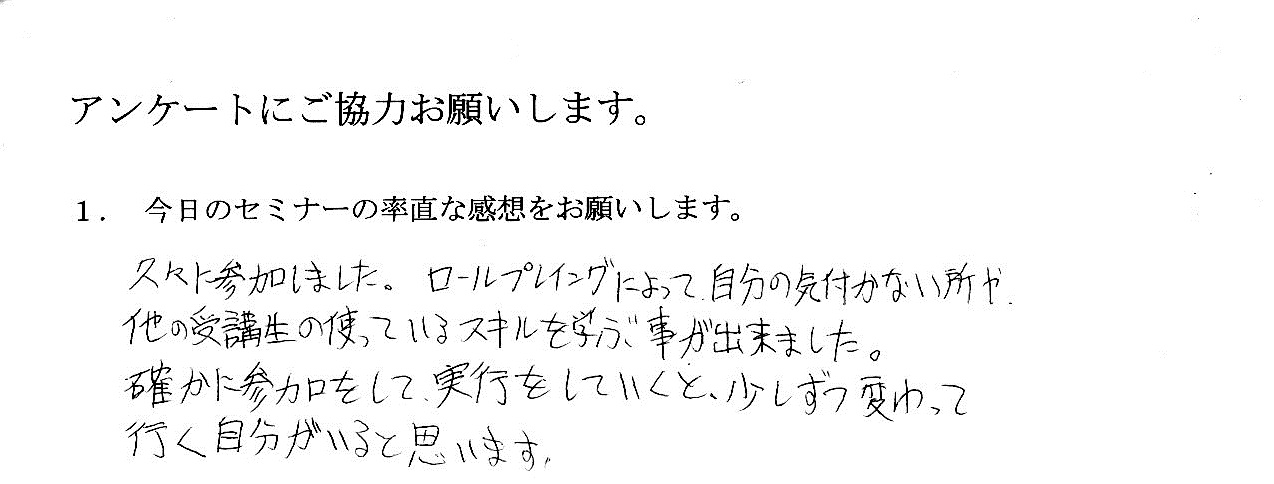 アンケートにご協力お願いします。
1. 今日のセミナーの率直な感想をお願いします。
久々に参加しました。ロールプレイングによって、自分の気付かない所や、
他の受講生の使っているスキルを学ぶ事が出来ました。
確かに参加をして、実行をしていくと、少しずつ変わって
行く自分がいると思います。